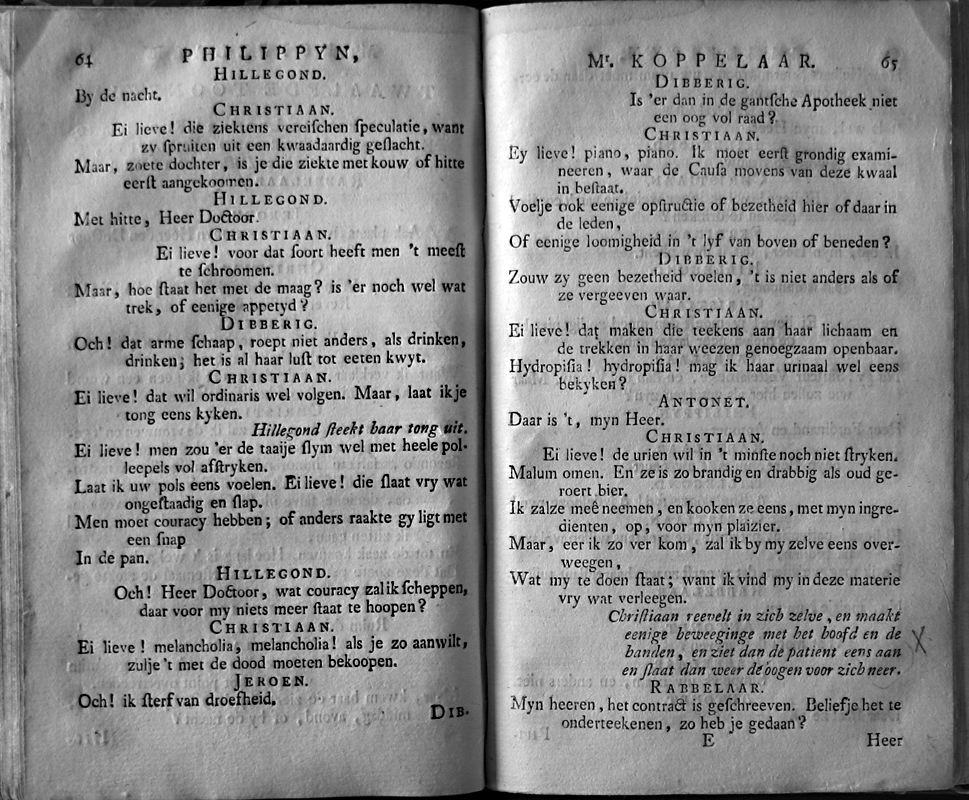 64 PHILIPPYN,
HILLEGOND.
By de nacht.
CHRISTIAAN.
Ei lieve! die ziektens vereiſchen ſpeculatie, want
zy ſpruiten uit een kwaadaardig geſlacht.
Maar, zoete dochter, is je die ziekte met kouw of hitte
eerſt aangekoomen.
HILLEGOND.
Met hitte, Heer Doctoor.
CHRISTIAAN.
Ei lieve! voor dat ſoort heeft men 't meeſt
te ſchroomen.
Maar, hoe ſtaat het met de maag? is 'er noch wel wat
trek, of eenige appetyd?
DIBBERIG.
Och! dat arme ſchaap, roept niet anders, als drinken,
drinken; het is al haar luſt tot eeten kwyt.
CHRISTIAAN.
Ei lieve! dat wil ordinaris wel volgen. Maar, laat ik je
tong eens kyken.
Hillegond ſteekt haar tong uit.
Ei lieve! men zou 'er de taaije ſlym wel met heele pol-
leepels vol afſtryken.
Laat ik uw pols eens voelen. Ei lieve! die ſlaat vry wat
ongeſtaadig en ſlap.
Men moet couracy hebben; of anders raakte gy ligt met
een ſnap
In de pan.
HILLEGOND.
Och! Heer Doctoor, wat couracy zal ik ſcheppen,
daar voor my niets meer ſtaat te hoopen?
CHRISTIAAN.
Ei lieve! melancholia, melancholia! als je zo aanwilt,
zulje 't met de dood moeten bekoopen.
JEROEN.
Och! ik ſterf van droefheid.
DIB-
Mr. KOPPELAAR. 65
DIBBERIG.
Is 'er dan in de gantſche Apotheek niet
een oog vol raad?
CHRISTIAAN.
Ey lieve! piano, piano. Ik moet eerſt grondig exami-
neeren, waar de Cauſa movens van deze kwaal
in beſtaat.
Voelje ook eenige opſtructie of bezetheid hier of daar in
de leden,
Of eenige loomigheid in 't lyf van boven of beneden?
DIBBERIG.
Zouw zy geen bezetheid voelen, 't is niet anders als of
ze vergeeven waar.
CHRISTIAAN.
Ei lieve! dat maken die teekens aan haar lichaam en
de trekken in haar weezen genoegzaam openbaar.
Hydropiſia! hydropiſia! mag ik haar urinaal wel eens
bekyken?
ANTONET.
Daar is 't, myn Heer.
CHRISTIAAN.
Ei lieve! de urien wil in 't minſte noch niet ſtryken.
Malum omen. En ze is zo brandig en drabbig als oud ge-
roert bier.
Ik zalze meê neemen, en kooken ze eens, met myn ingre-
dienten, op, voor myn plaizier.
Maar, eer ik zo ver kom, zal ik by my zelve eens over-
weegen,
Wat my te doen ſtaat; want ik vind my in deze materie
vry wat verleegen.
Chriſtiaan reevelt in zich zelve, en maakt
eenige beweeginge met het hoofd en de
handen, en ziet dan de patient eens aan
en ſlaat dan weer de oogen voor zich neer.
RABBELAAR.
Myn heeren, het contract is geſchreeven. Beliefje het te
onderteekenen, zo heb je gedaan?
E Heer